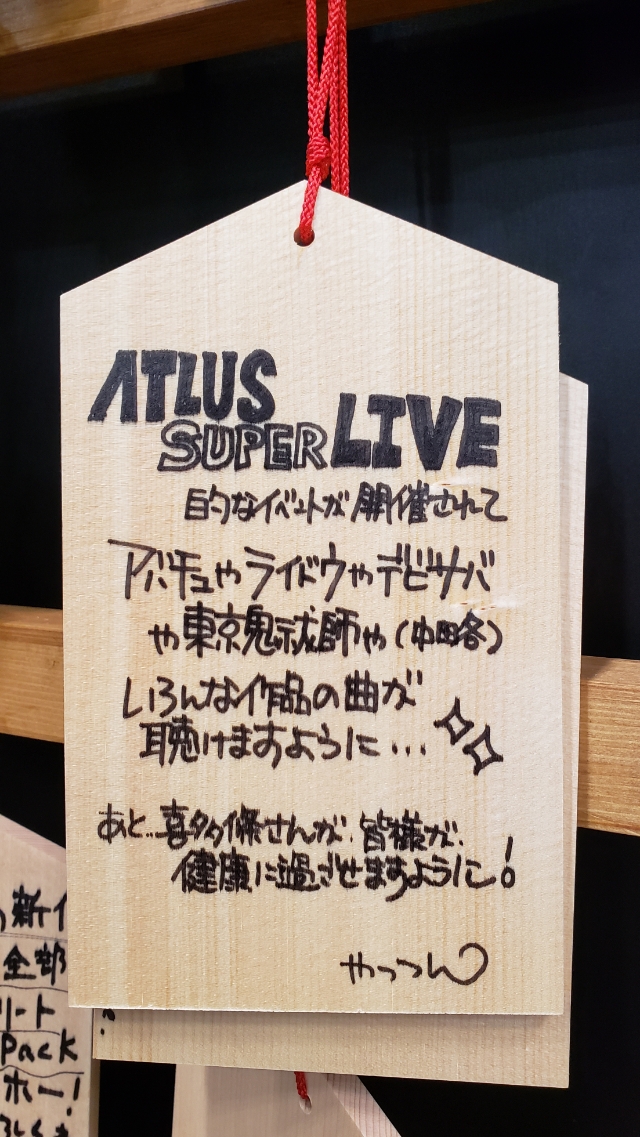 ATLUS
SUPER LIVE
的なイベントが開催されて
アバチュやライドウやデビサバ
や東京鬼祓師や(中略)
いろんな作品の曲が
聴けますように…
あと…喜多條さんが、皆様が、
健康に過ごせますように!
やっつん
新
全部
リート
Pack
ホー!